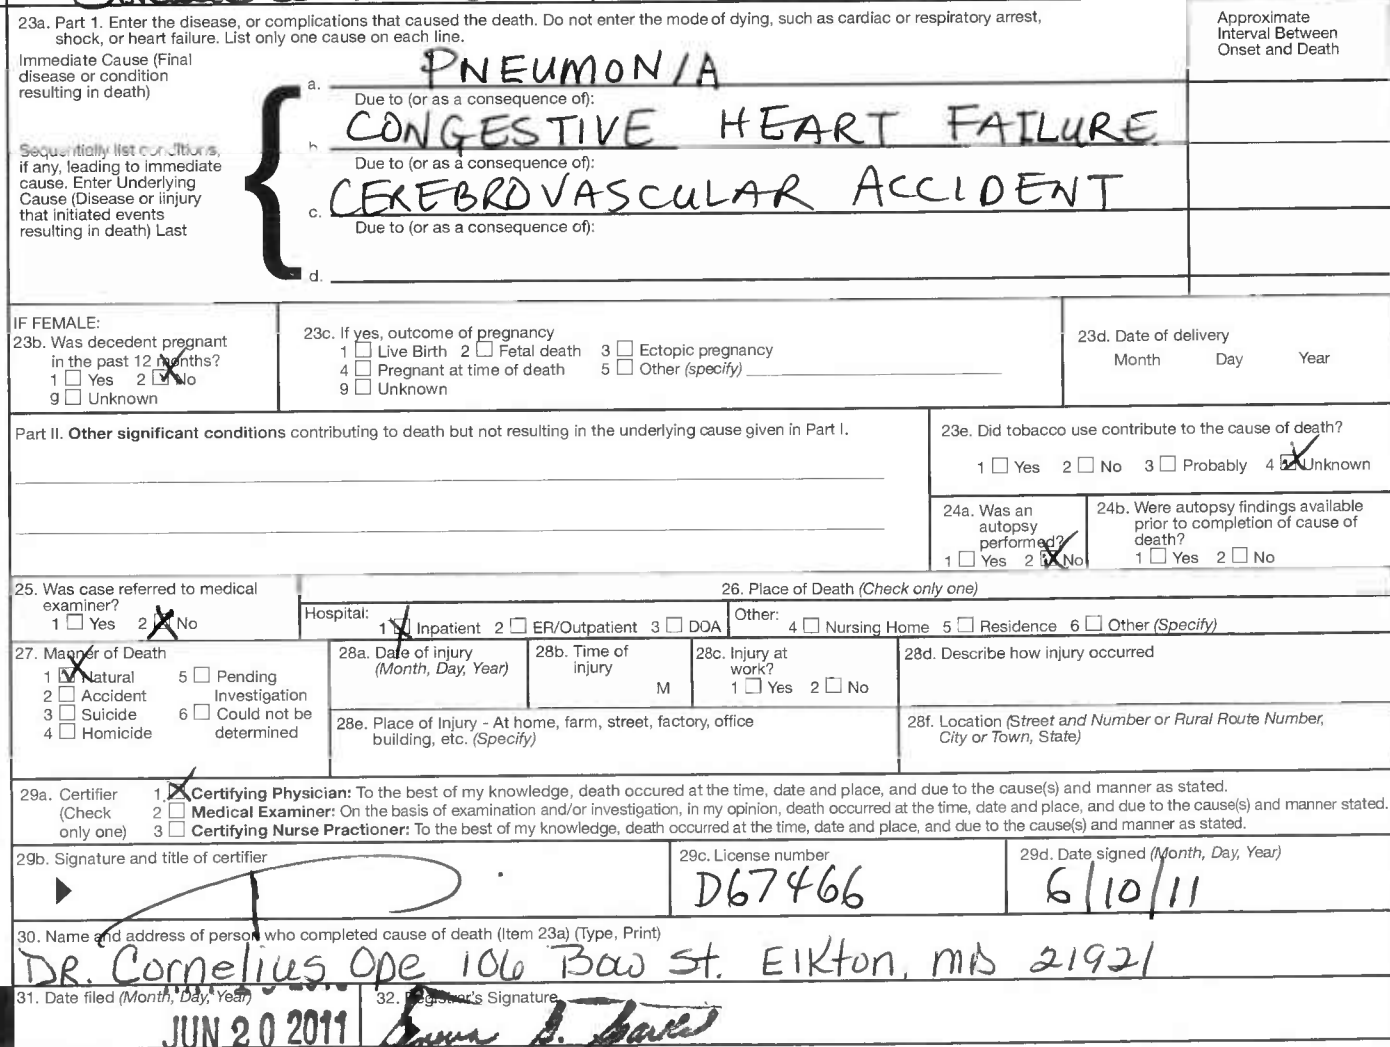 23a. Part 1. Enter the disease, or complications that caused the death. Do not enter the mode of dying, such as cardiac or respiratory arrest,
shock, or heart failure. List only one cause on each line.
Approximate
Interval Between
Onset and Death
Immediate Cause (Final
disease or condition
resulting in death)
a. PNEUMONIA
Due to (or as a consequence of):
CONGESTIVE HEART FAILURE
Sequentially list conditions,
if any, leading to immediate
cause. Enter Underlying
Cause (Disease or iinjury
that initiated events
resulting in death) Last
Due to (or as a consequence of):
c. CEREBROVASCULAR ACCIDENT
Due to (or as a consequence of):
d.
IF FEMALE:
23b. Was decedent pregnant
in the past 12 months?
1 Yes 2 No
9 Unknown
23c. If yes, outcome of pregnancy
1 Live Birth 2 Fetal death 3 Ectopic pregnancy
4 Pregnant at time of death 5 Other (specify)
9 Unknown
23d. Date of delivery
Month Day Year
Part II. Other significant conditions contributing to death but not resulting in the underlying cause given in Part I.
23e. Did tobacco use contribute to the cause of death?
1 Yes 2 No 3 Probably 4 Unknown
24a. Was an
autopsy
performed?
1 Yes 2 No
24b. Were autopsy findings available
prior to completion of cause of
death?
1 Yes 2 No
25. Was case referred to medical
examiner?
1 Yes 2 No
26. Place of Death (Check only one)
Hospital: 1 Inpatient 2 ER/Outpatient 3 DOA
Other: 4 Nursing Home 5 Residence 6 Other (Specify)
27. Manner of Death
1 Natural 5 Pending
2 Accident Investigation
3 Suicide 6 Could not be
4 Homicide determined
28a. Date of injury
(Month, Day, Year)
28b. Time of
injury
M
28c. Injury at
work?
1 Yes 2 No
28d. Describe how injury occurred
28e. Place of Injury - At home, farm, street, factory, office
building, etc. (Specify)
28f. Location (Street and Number or Rural Route Number,
City or Town, State)
29a. Certifier
(Check
only one)
1 Certifying Physician: To the best of my knowledge, death occured at the time, date and place, and due to the cause(s) and manner as stated.
2 Medical Examiner: On the basis of examination and/or investigation, in my opinion, death occurred at the time, date and place, and due to the cause(s) and manner stated.
3 Certifying Nurse Practioner: To the best of my knowledge, death occurred at the time, date and place, and due to the cause(s) and manner as stated.
29b. Signature and title of certifier
29c. License number
D67466
29d. Date signed (Month, Day, Year)
6/10/11
30. Name and address of person who completed cause of death (Item 23a) (Type, Print)
DR. Cornelius Ope 106 Bow St. Elkton, MD 21921
31. Date filed (Month, Day, Year)
JUN 20 2011
32. Registrar's Signature